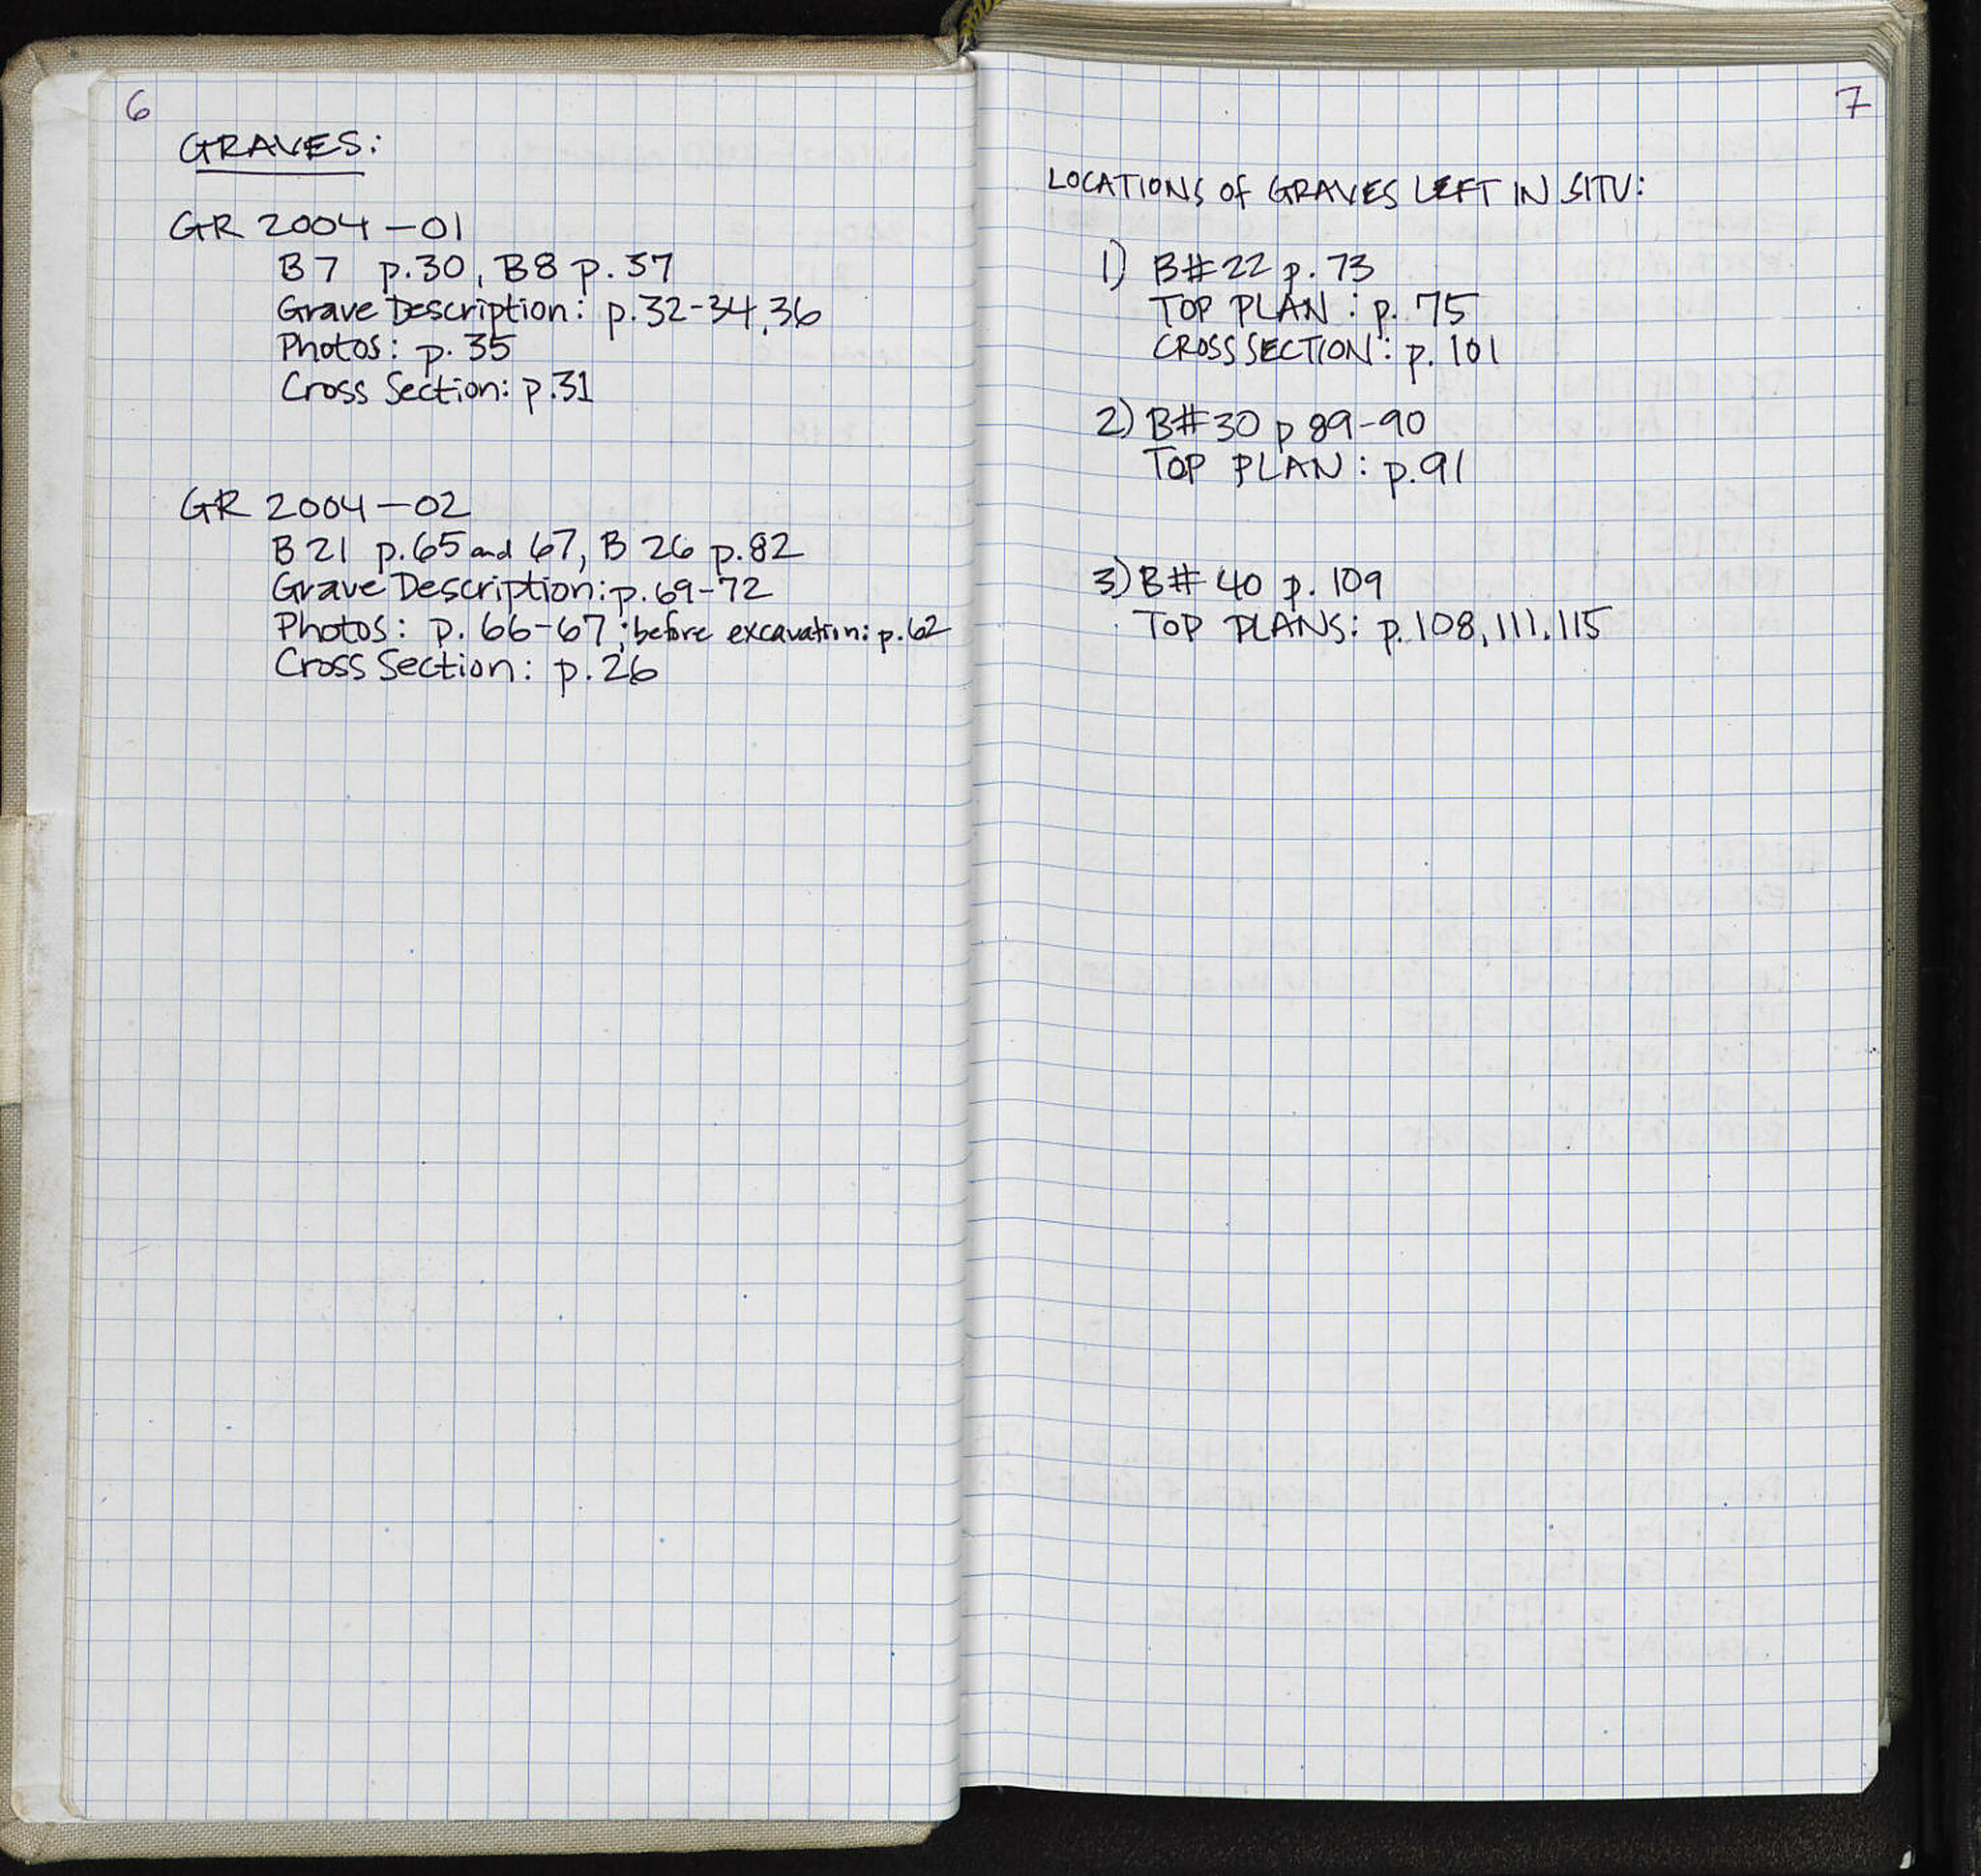 6
GRAVES:
GR 2004-01
B7 p.30, B8 p.37
Grave Description: p.32-34,36
Photos: p.35
Cross Section: p.31
GR 2004-02
B21 p.65 and 67, B 26 p.82
Grave Description: p.69-72
Photos: p. 66-67; before excavation: p.62
Cross Section: p.26
7
LOCATIONS of GRAVES LEFT IN SITU:
1) B#22 p.73
TOP PLAN: p. 75
CROSS SECTION: p. 101
2) B#30 p 89-90
TOP PLAN: p.91
3) B# 40 p. 109
TOP PLANS: p.108,111,115